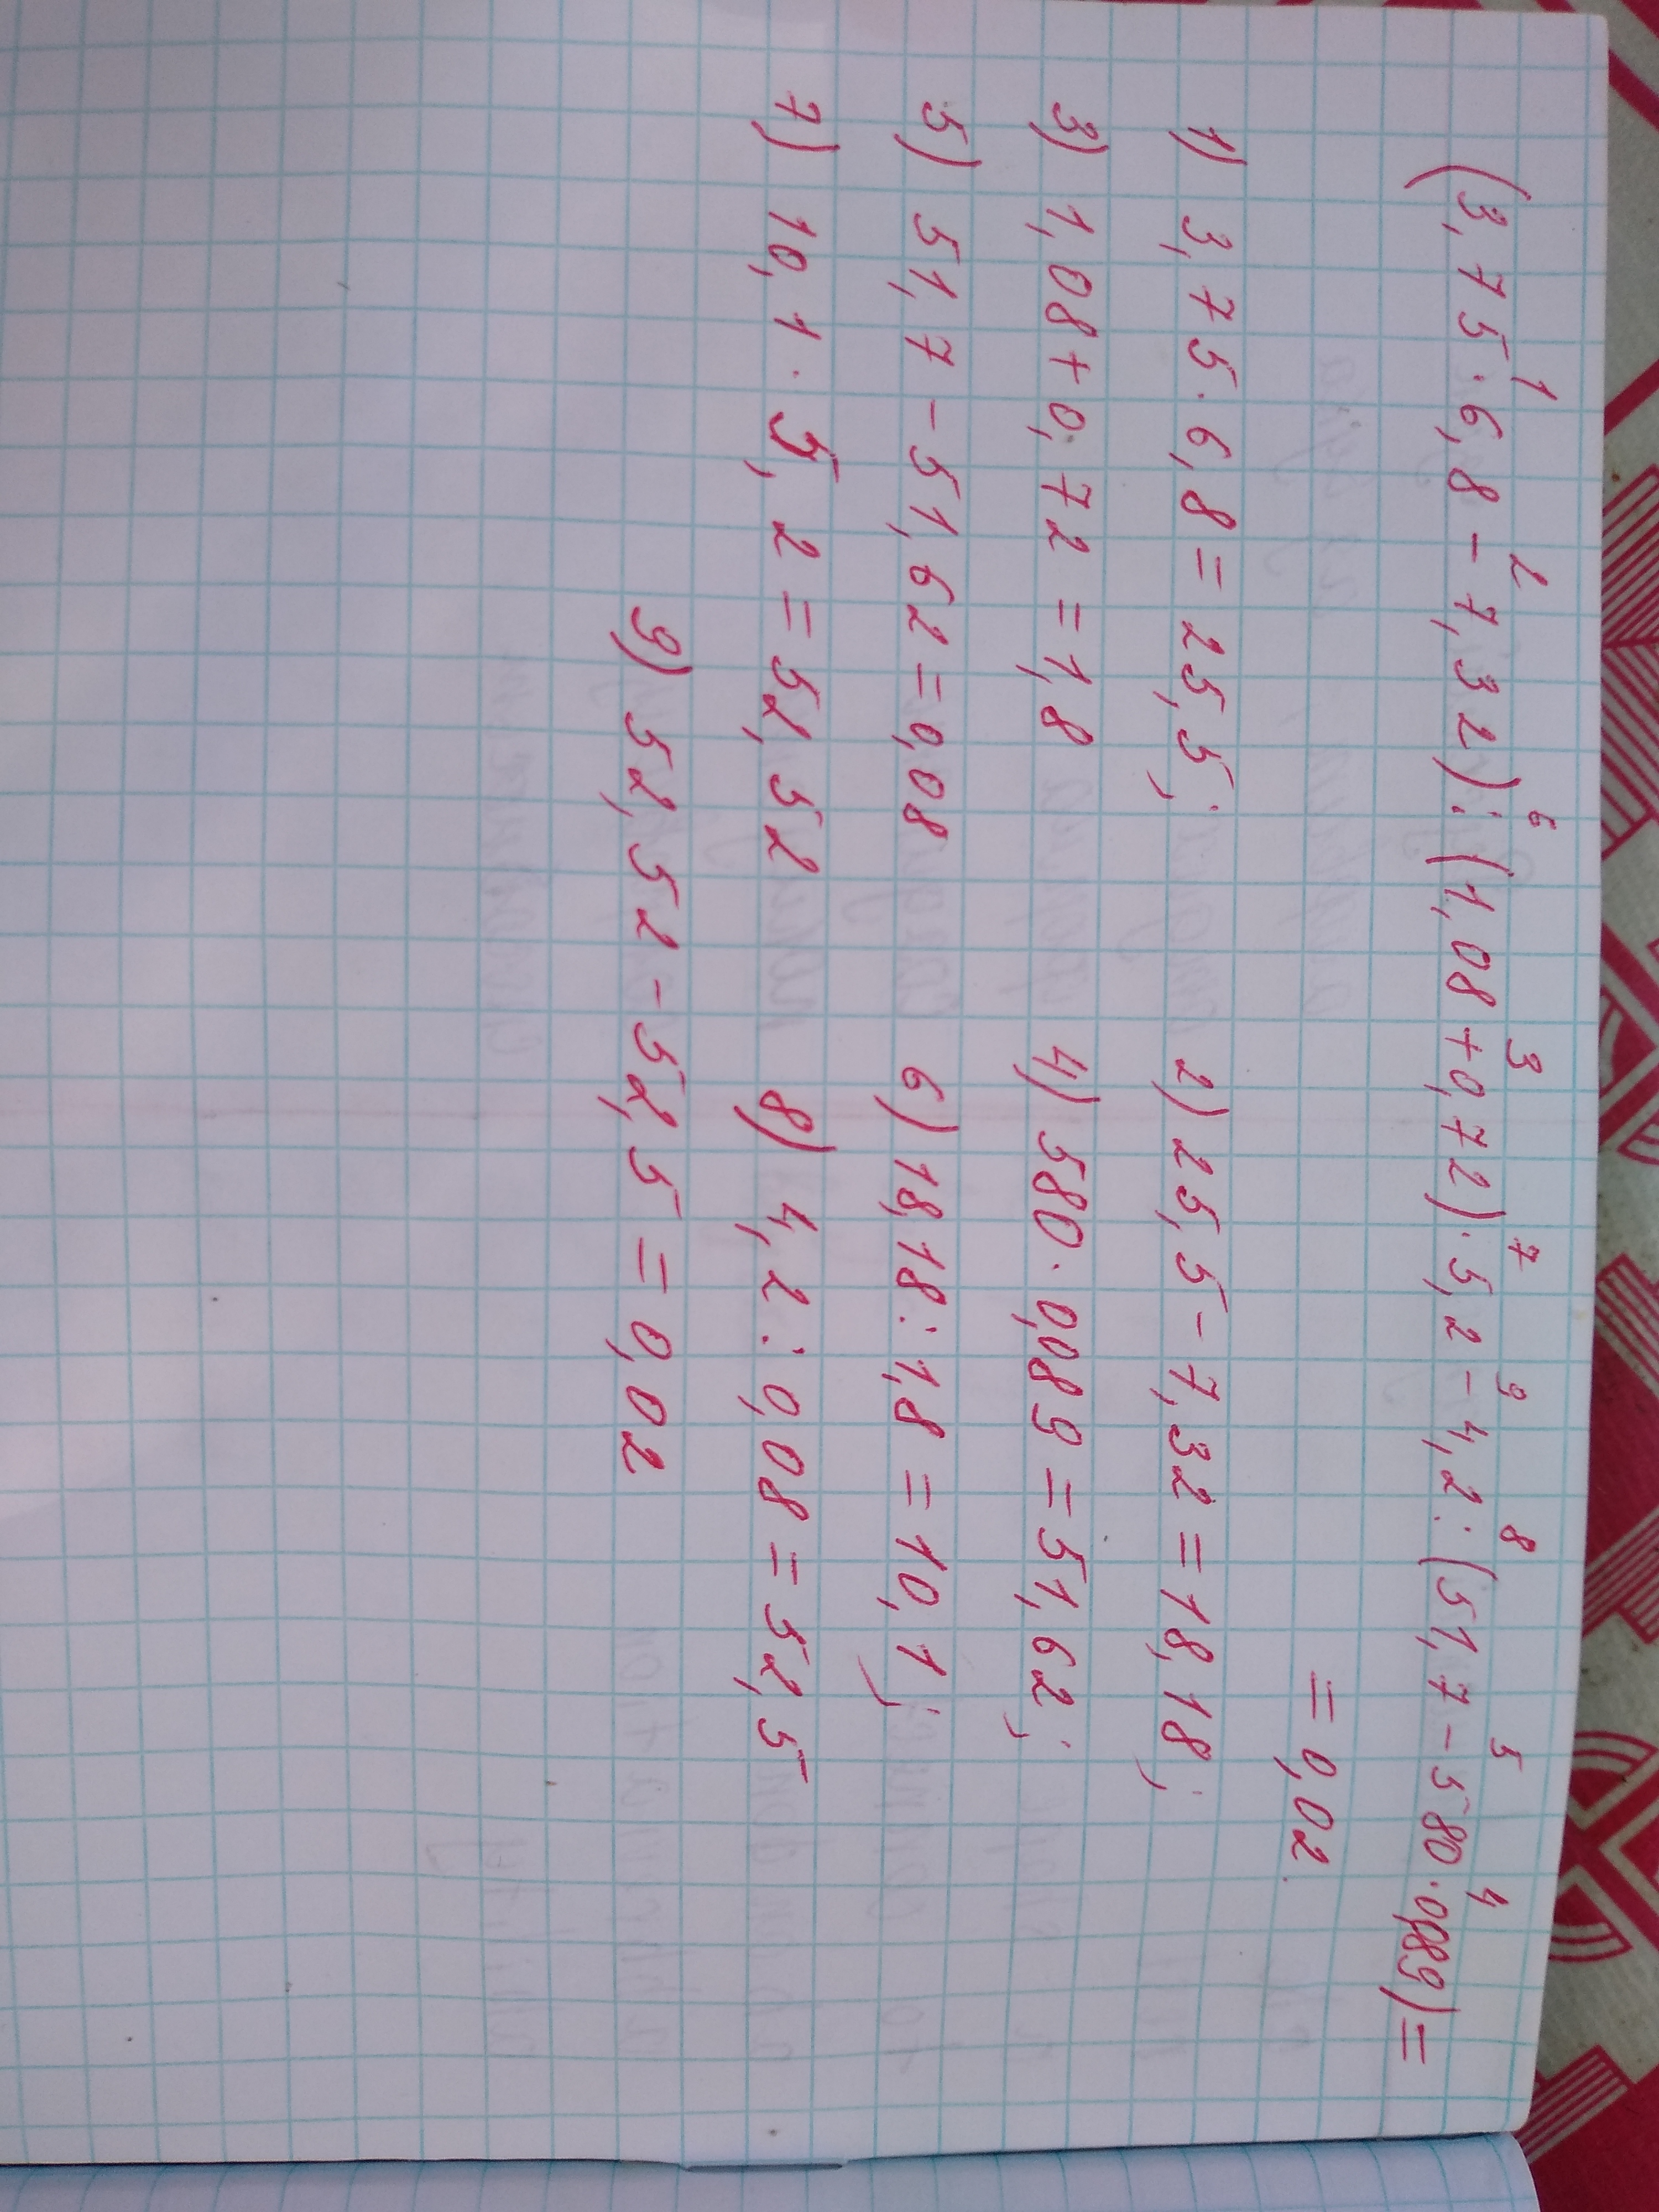 1 2 6 3 7 9 8 5 4
(3,75·6,8-7,32):(1,08+0,72)·5,2-4,2:(51,7-580·0,089)=
=0,02
1) 3,75·6,8=25,5; 2) 25,5-7,32=18,18;
3) 1,08+0,72=1,8 4) 580·0,089=51,62;
5) 51,7-51,62=0,08 6) 18,18:1,8=10,1;
7) 10,1·5,2=52,52 8) 4,2:0,08=52,5
9) 52,52-52,5=0,02